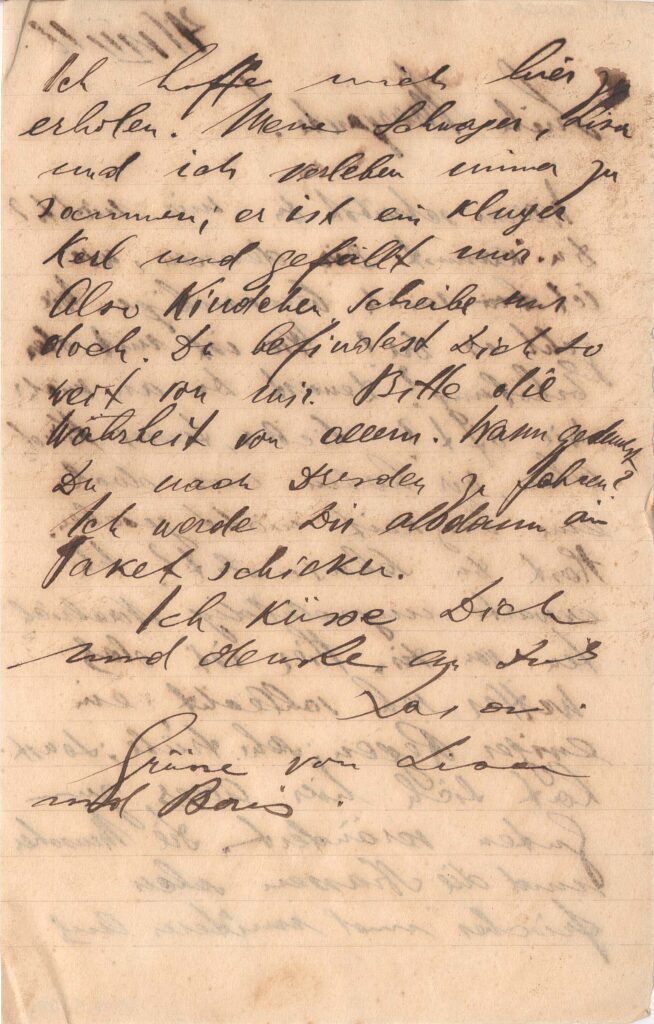 Ich hoffe mich hier zu
erholen. Meine Schwager, Lisa
und ich verleben immer zu
sammen, er ist ein kluger
Kerl und gefällt mir.
Also Kindchen schreibe mir
doch. Du befindest Dich so
weit von mir. Bitte die
Wahrheit von allem. Wann gedenkst
Du nach Dresden zu fahren?
Ich werde Dir alsdann ein
Paket schicken.
Ich küsse Dich
und denke an Dich
Grüsse von
und Boris.